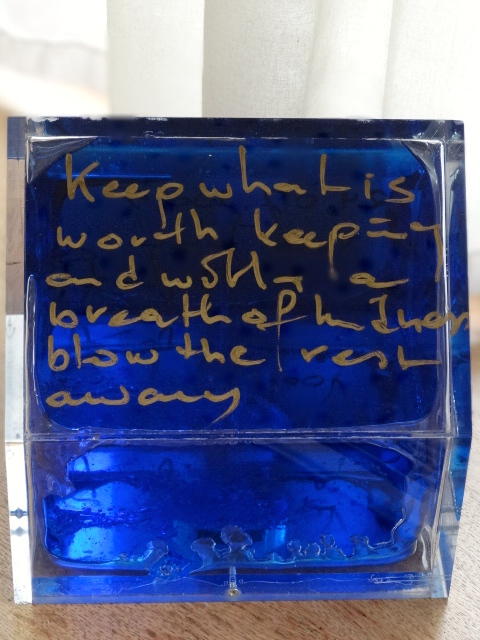 Keep what is
worth keeping
and with a
breath of kindness
blow the rest
away